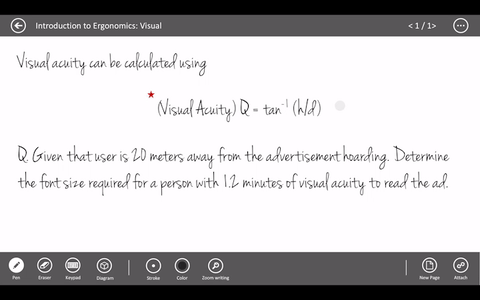 Introduction to Ergonomics: Visual
< 1 / 1>
Visual acuity can be calculated using
★ (Visual Acuity) Q = tan⁻¹ (h/d)
Q. Given that user is 20 meters away from the advertisement hoarding. Determine
the font size required for a person with 1.2 minutes of visual acuity to read the ad.
Pen Eraser Keypad Diagram Stroke Color Zoom writing New Page Attach